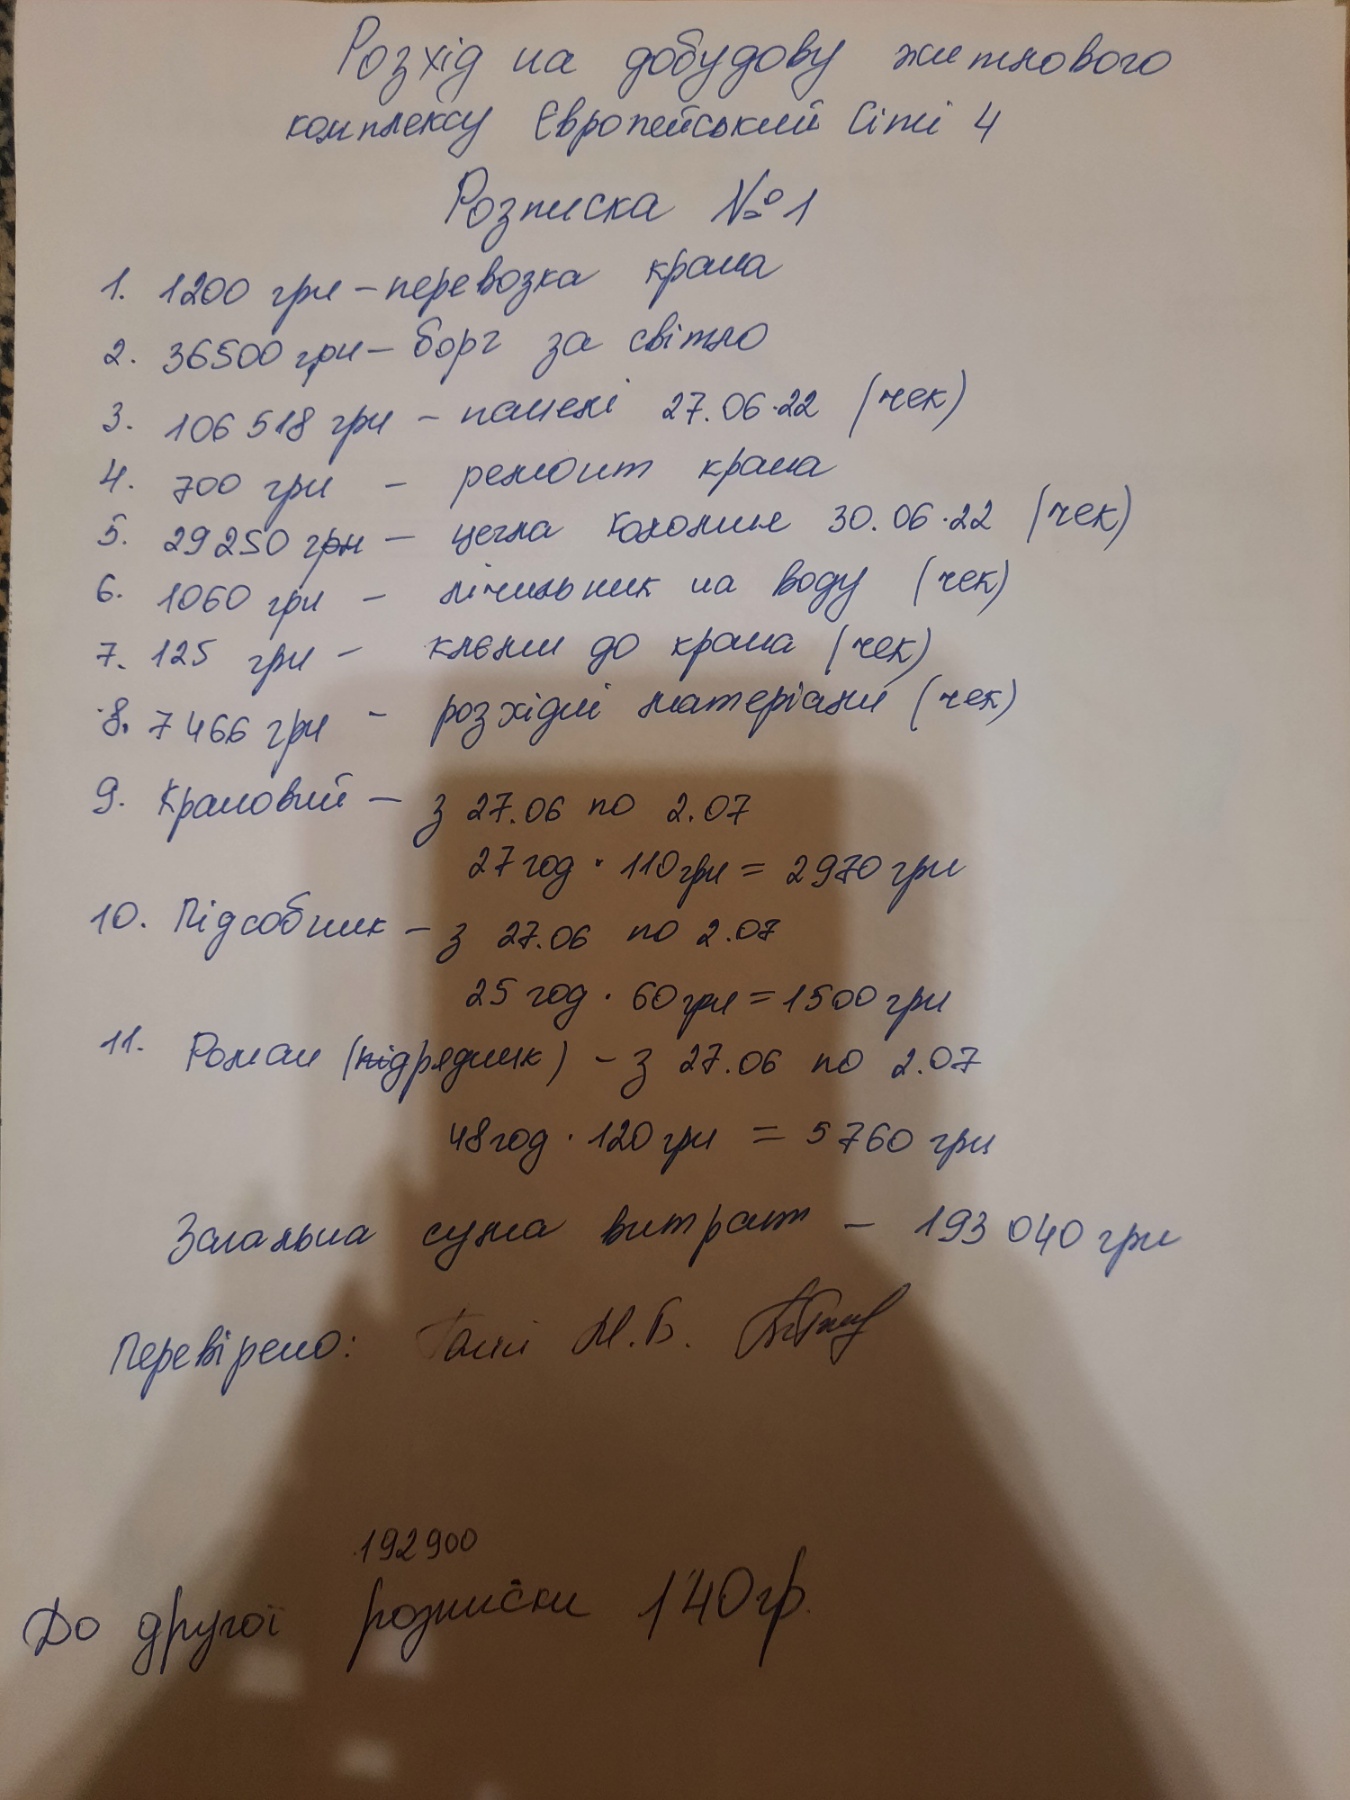 Розхід на добудову житлового
комплексу Європейський Сіті 4
Розписка №1
1. 1200 грн – перевозка крана
2. 36500 грн – борг за світло
3. 106 518 грн – панелі 27.06.22 (чек)
4. 700 грн – ремонт крана
5. 29250 грн – цегла колония 30.06.22 (чек)
6. 1060 грн – лічильник на воду (чек)
7. 125 грн – клєми до крана (чек)
8. 7466 грн – розхідні матеріали (чек)
9. Крановий – з 27.06 по 2.07
27 год · 110 грн = 2970 грн
10. Підсобник – з 27.06 по 2.07
25 год · 60 грн = 1500 грн
11. Роман (підрядник) – з 27.06 по 2.07
48 год · 120 грн = 5760 грн
Загальна сума витрат – 193 040 грн
Перевірено: М.Б.
192900
До другої розписки 140 гр.